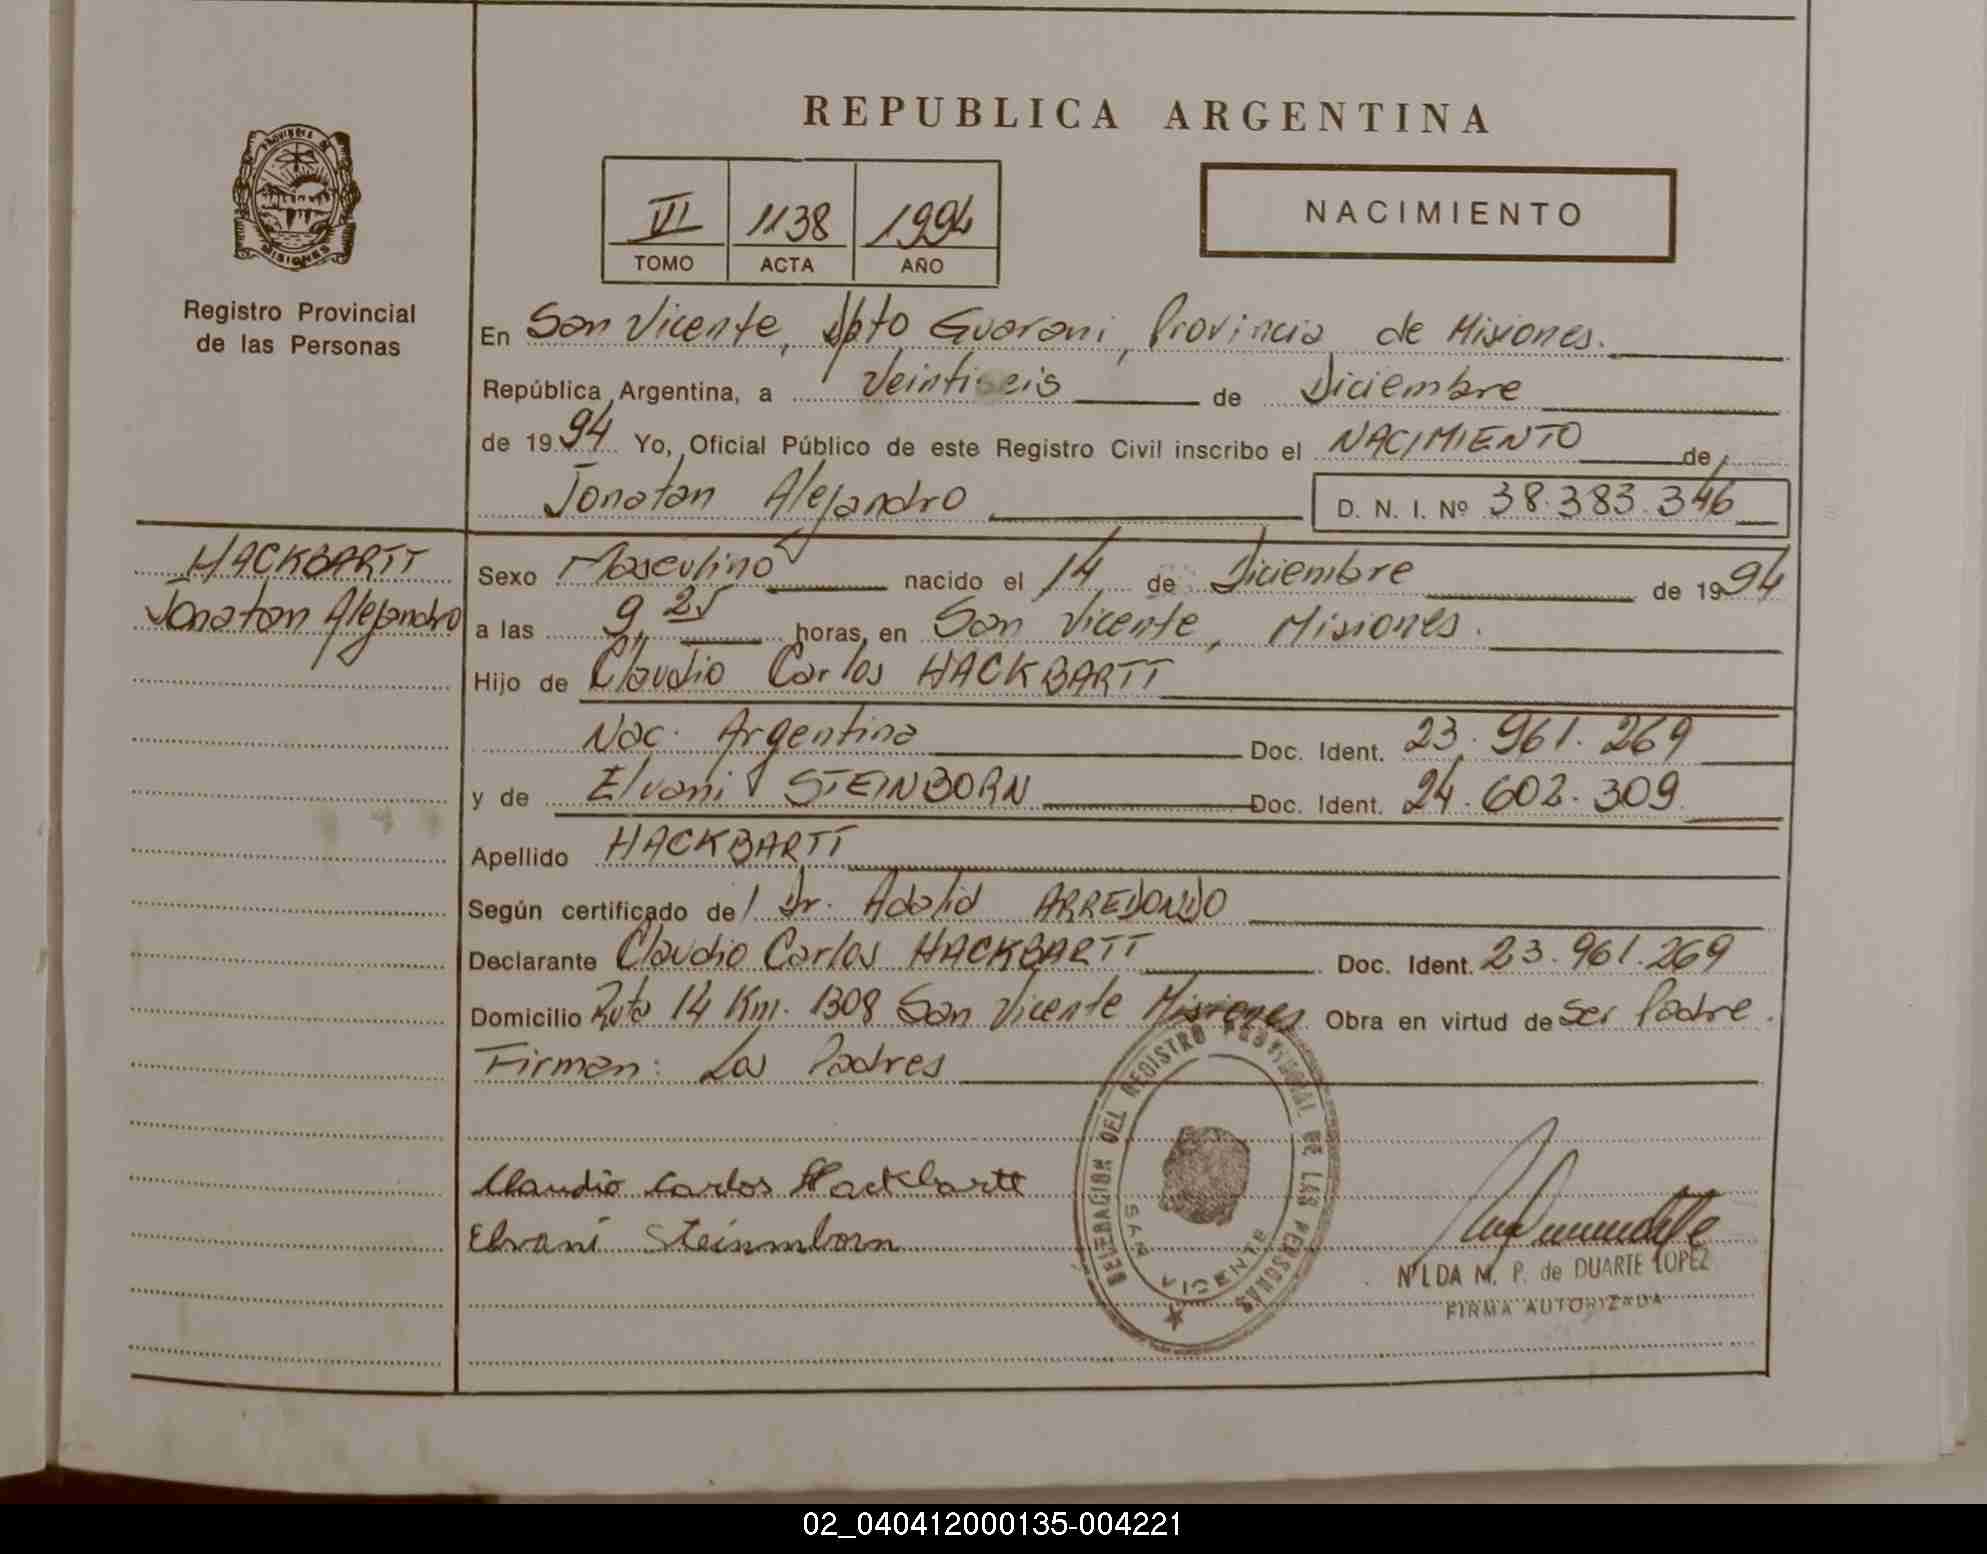 REPUBLICA ARGENTINA
PROVINCIA DE
MISIONES
Registro Provincial
de las Personas
III 1138 1994
TOMO ACTA AÑO
NACIMIENTO
En San Vicente, Dpto Guarani, Provincia de Misiones.
República Argentina, a Veintiseis de Diciembre
de 1994 Yo, Oficial Público de este Registro Civil inscribo el NACIMIENTO de
Jonatan Alejandro D. N. I. Nº 38.383.346
HACKBARTT
Jonatan Alejandro
Sexo Masculino nacido el 14 de Diciembre de 1994
a las 9 25 horas, en San Vicente, Misiones.
Hijo de Claudio Carlos HACKBARTT
Nac. Argentina Doc. Ident. 23.961.269
y de Elvani STEINBORN Doc. Ident. 24.602.309
Apellido HACKBARTT
Según certificado del Dr. Adalid ARREDONDO
Declarante Claudio Carlos HACKBARTT Doc. Ident. 23.961.269
Domicilio Ruta 14 Km. 1308 San Vicente Misiones Obra en virtud de ser Padre.
Firman: Los Padres
Claudio Carlos Hackbartt
Elvani Steinmborn
DELEGACION DEL REGISTRO PROVINCIAL DE LAS PERSONAS
SAN VICENTE
NILDA M. P. de DUARTE LOPEZ
FIRMA AUTORIZADA
02_040412000135-004221